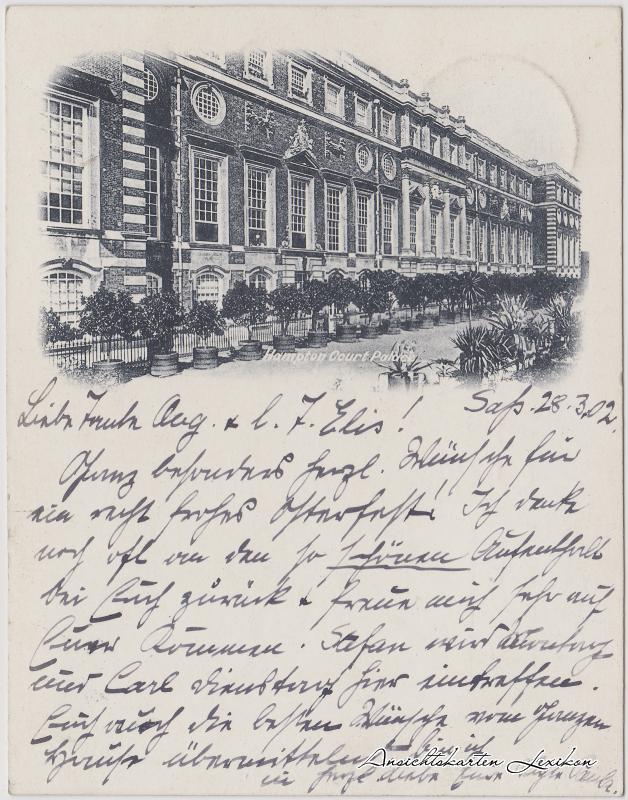 Hampton Court Palace
Liebe Tante Aug. & l. T. Elis! Sass. 28.3.02.
Ganz besonders herzl. Wünsche für
ein recht frohes Osterfest! Ich denke
noch oft an den so schönen Aufenthalt
bei Euch zurück & freue mich sehr auf
Euer Kommen. Stefan wird Sonntag
und Carl Dienstag hier eintreffen.
Euch auch die besten Wünsche vom ganzen
Hause übermittelnd bin ich
in herzl. Liebe Eure
Ansichtskarten Lexikon